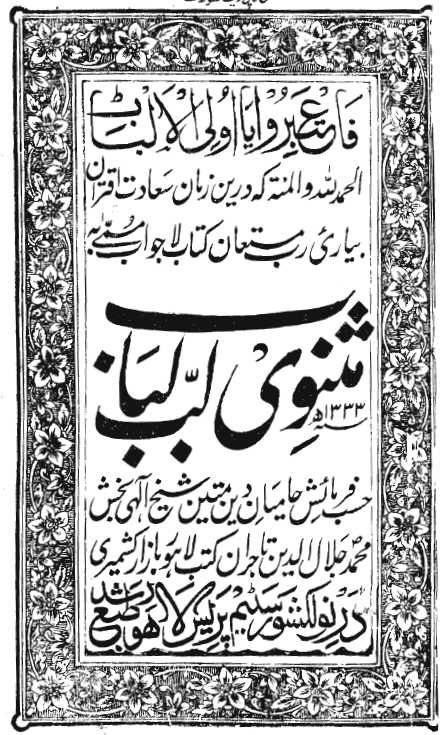 فاعتبروا یا اولی الالباب
الحمد للہ والمنۃ کہ درین زمان سعادت اقتران
بیاریٔ رب مستعان کتاب لاجواب مسمّٰی بہ
مثنوی لبّ لباب
سنہ ۱۳۳۳ھ
حسب فرمائش حامیان دین متین شیخ الٰہی بخش
محمد جلال الدین تاجران کتب لاہور بازار کشمیری
در نولکشور سٹیم پریس لاہور طبع شد